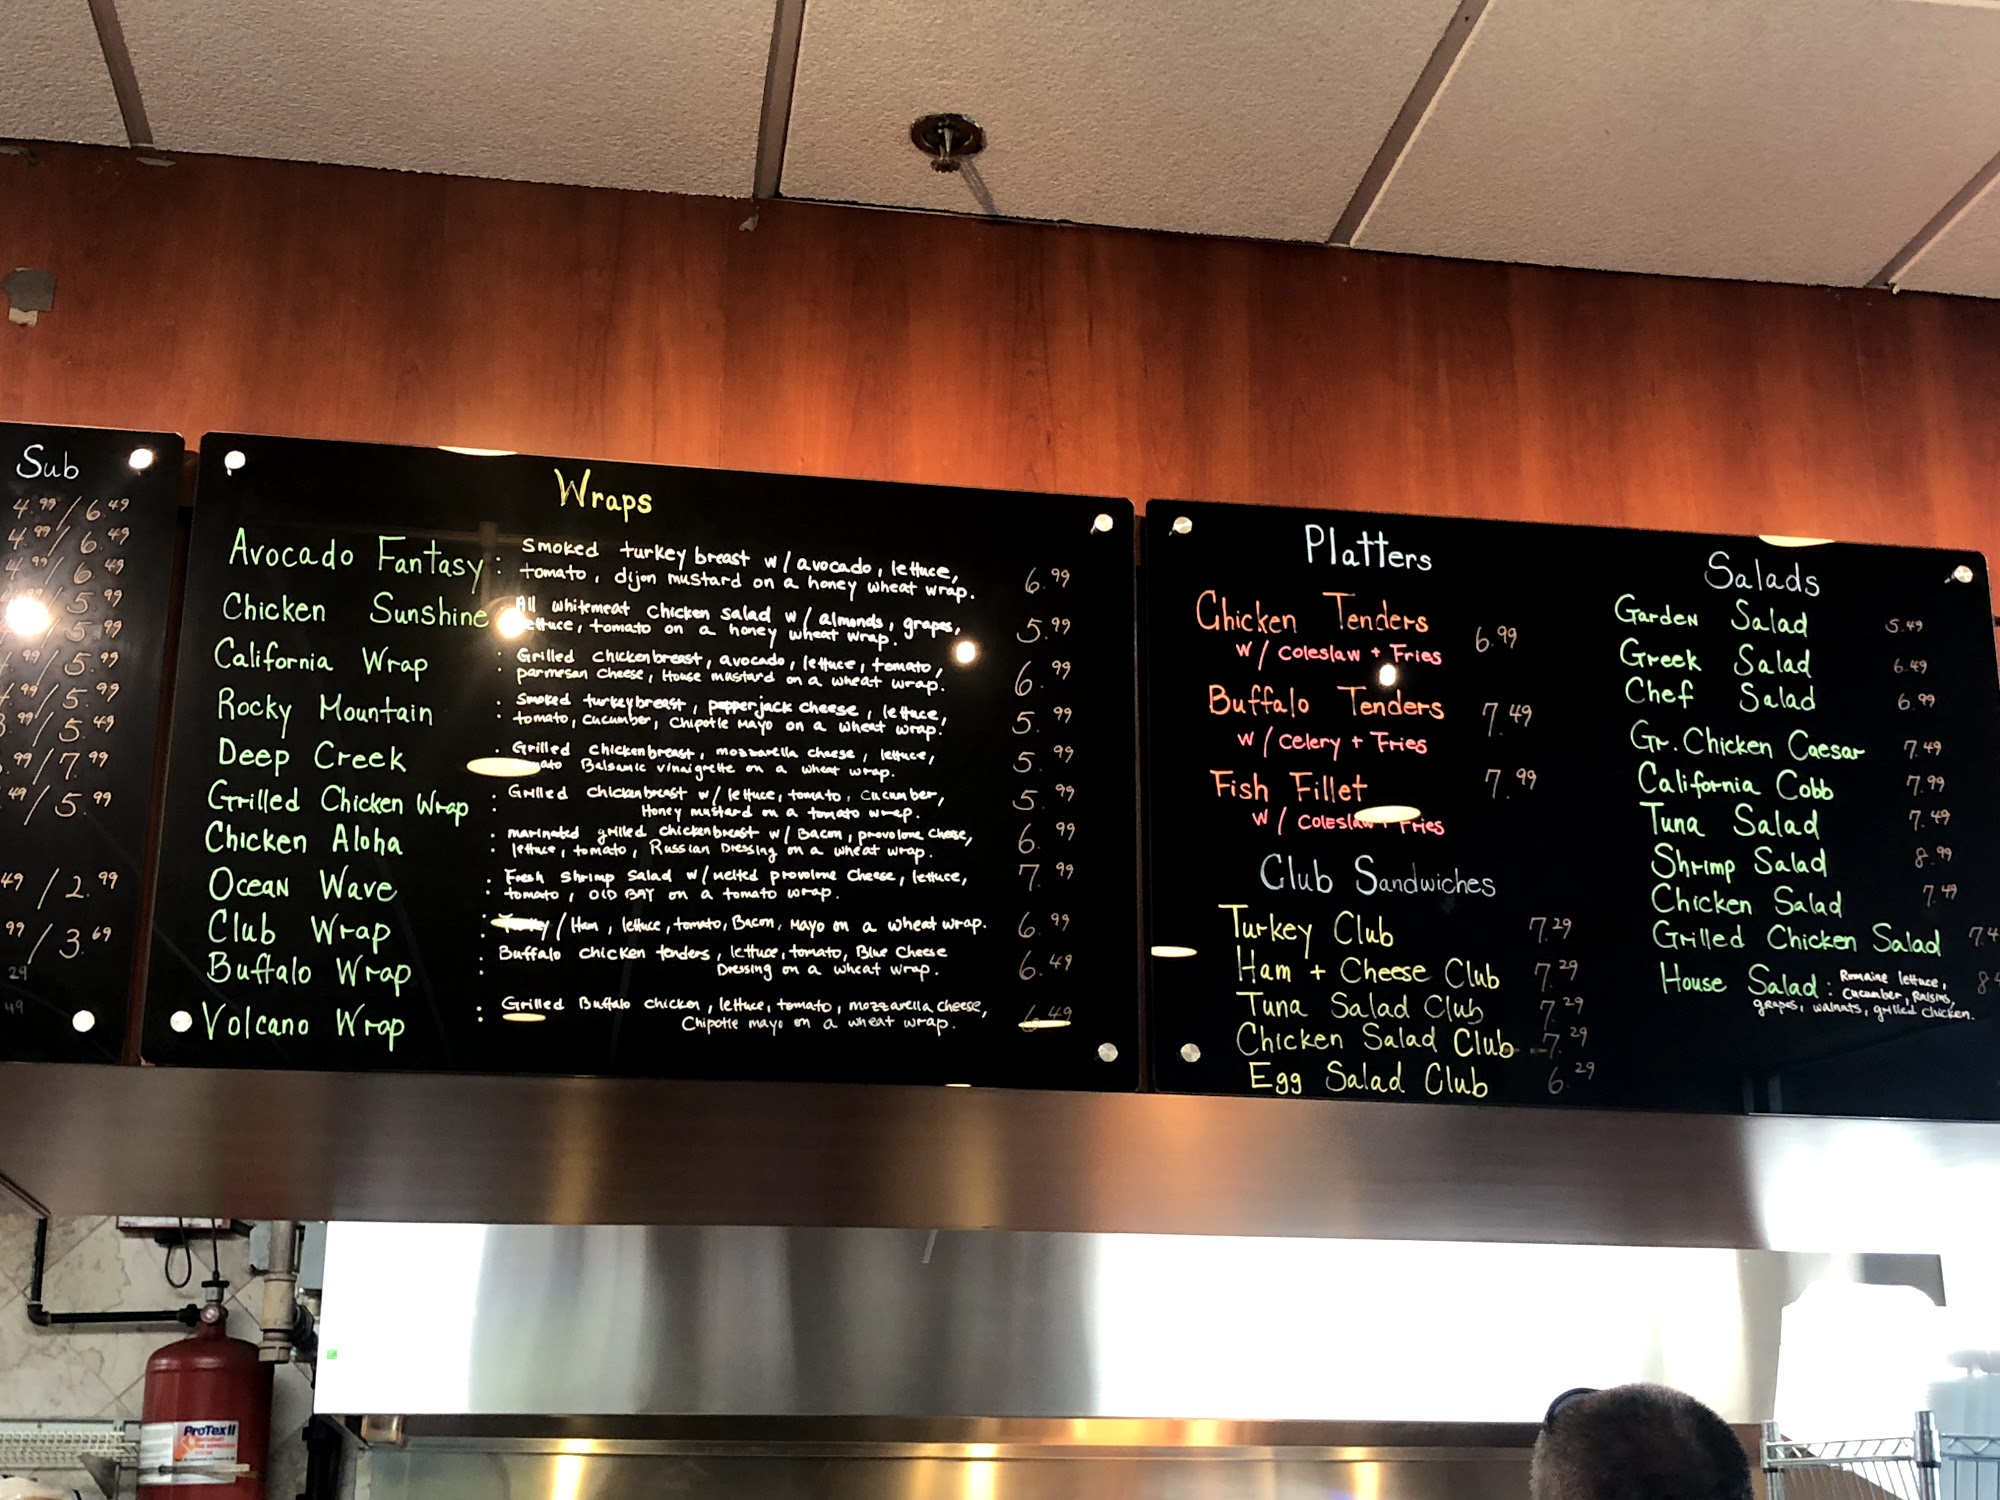 Sub
4.99/6.49
4.99/6.49
4.99/6.49
5.99
5.99
.99/5.99
.99/5.99
.99/5.49
.99/7.99
.49/5.99
49/2.99
99/3.69
29
49
Wraps
Avocado Fantasy : Smoked turkey breast w/ avocado, lettuce,
tomato, dijon mustard on a honey wheat wrap. 6.99
Chicken Sunshine All whitemeat chicken salad w/ almonds, grapes,
lettuce, tomato on a honey wheat wrap. 5.99
California Wrap : Grilled chickenbreast, avocado, lettuce, tomato,
parmesan cheese, House mustard on a wheat wrap. 6.99
Rocky Mountain : Smoked turkeybreast, pepperjack cheese, lettuce,
tomato, cucumber, Chipotle mayo on a wheat wrap. 5.99
Deep Creek : Grilled chickenbreast, mozzarella cheese, lettuce,
Balsamic vinaigrette on a wheat wrap. 5.99
Grilled Chicken Wrap : Grilled chickenbreast w/ lettuce, tomato, cucumber,
Honey mustard on a tomato wrap. 5.99
Chicken Aloha : marinated grilled chickenbreast w/ Bacon, provolone cheese,
lettuce, tomato, Russian Dressing on a wheat wrap. 6.99
Ocean Wave : Fresh shrimp salad w/ melted provolone cheese, lettuce,
tomato, OLD BAY on a tomato wrap. 7.99
Club Wrap : Turkey / Ham, lettuce, tomato, Bacon, mayo on a wheat wrap. 6.99
Buffalo Wrap : Buffalo chicken tenders, lettuce, tomato, Blue cheese
Dressing on a wheat wrap. 6.49
Volcano Wrap : Grilled Buffalo chicken, lettuce, tomato, mozzarella cheese,
Chipotle mayo on a wheat wrap. 6.49
Platters
Chicken Tenders 6.99
w/ Coleslaw + Fries
Buffalo Tenders 7.49
w/ Celery + Fries
Fish Fillet 7.99
w/ Coleslaw + Fries
Club Sandwiches
Turkey Club 7.29
Ham + Cheese Club 7.29
Tuna Salad Club 7.29
Chicken Salad Club 7.29
Egg Salad Club 6.29
Salads
Garden Salad 5.49
Greek Salad 6.49
Chef Salad 6.99
Gr. Chicken Caesar 7.49
California Cobb 7.99
Tuna Salad 7.49
Shrimp Salad 8.99
Chicken Salad 7.49
Grilled Chicken Salad 7.4
House Salad : Romaine lettuce, 8
cucumber, Raisins,
grapes, walnuts, grilled chicken.
ProTex II